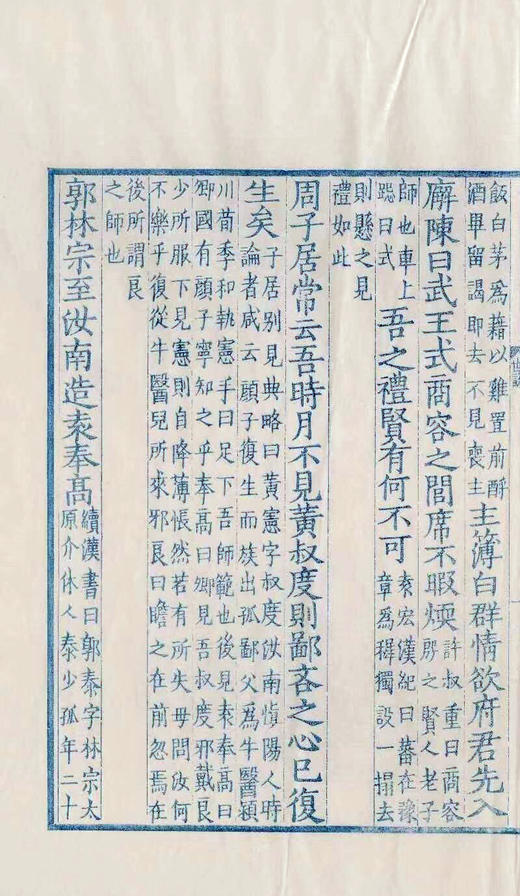 飯白茅爲藉以雞置前酹
酒畢留謁即去不見喪主
主簿白群情欲府君先入
廨陳曰武王式商容之閭席不暇煗
許叔重曰商容
殷之賢人老子
師也車上
跽曰式
吾之禮賢有何不可
袁宏漢紀曰蕃在豫
章爲穉獨設一榻去
則懸之見
禮如此
周子居常云吾時月不見黃叔度則鄙吝之心已復
生矣
子居別見典略曰黃憲字叔度汝南慎陽人時
論者咸云顔子復生而族出孤鄙父爲牛醫潁
川荀季和執憲手曰足下吾師範也後見袁奉高曰
卿國有顔子寧知之乎奉高曰卿見吾叔度邪戴良
少所服下見憲則自降薄悵然若有所失母問汝何
不樂乎復從牛醫兒所來邪良曰瞻之在前忽焉在
後所謂良
之師也
郭林宗至汝南造袁奉高
續漢書曰郭泰字林宗太
原介休人泰少孤年二十